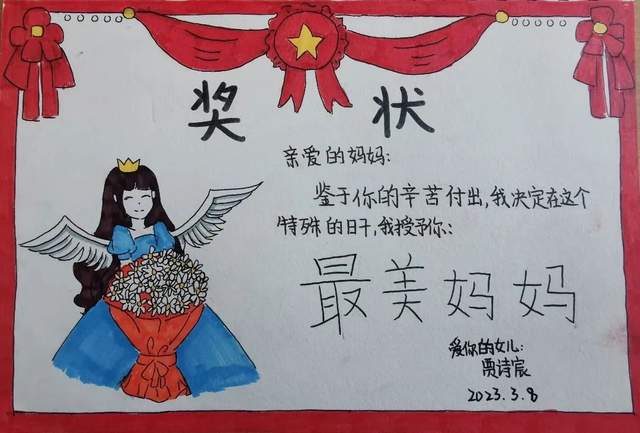 奖状
亲爱的妈妈:
鉴于你的辛苦付出,我决定在这个
特殊的日子,我授予你:
最美妈妈
爱你的女儿:
贾诗宸
2023.3.8